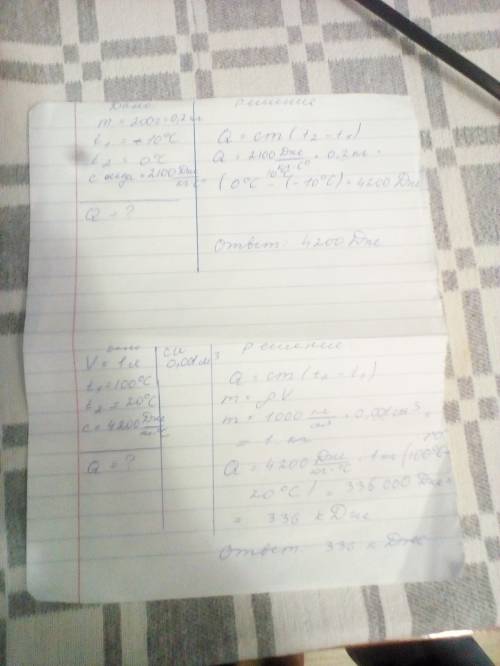 Дано
m = 200г = 0,2 кг
t₁ = -10°C
t₂ = 0°C
с льда = 2100 Дж/кг·°C
Q = ?
Решение
Q = cm(t₂ - t₁)
Q = 2100 Дж/кг·C° · 0,2 кг ·
10°C
· (0°C - (-10°C) = 4200 Дж
Ответ: 4200 Дж
Дано
V = 1 л
t₁ = 100°C
t₂ = 20°C
c = 4200 Дж/кг·°C
Q = ?
СИ
0,001 м³
Решение
Q = cm(t₂ - t₁)
m = ρV
m = 1000 кг/м³ · 0,001 м³ =
= 1 кг
Q = 4200 Дж/кг·°C · 1 кг (100°C-
20°C) = 336 000 Дж =
= 336 кДж
Ответ: 336 кДж